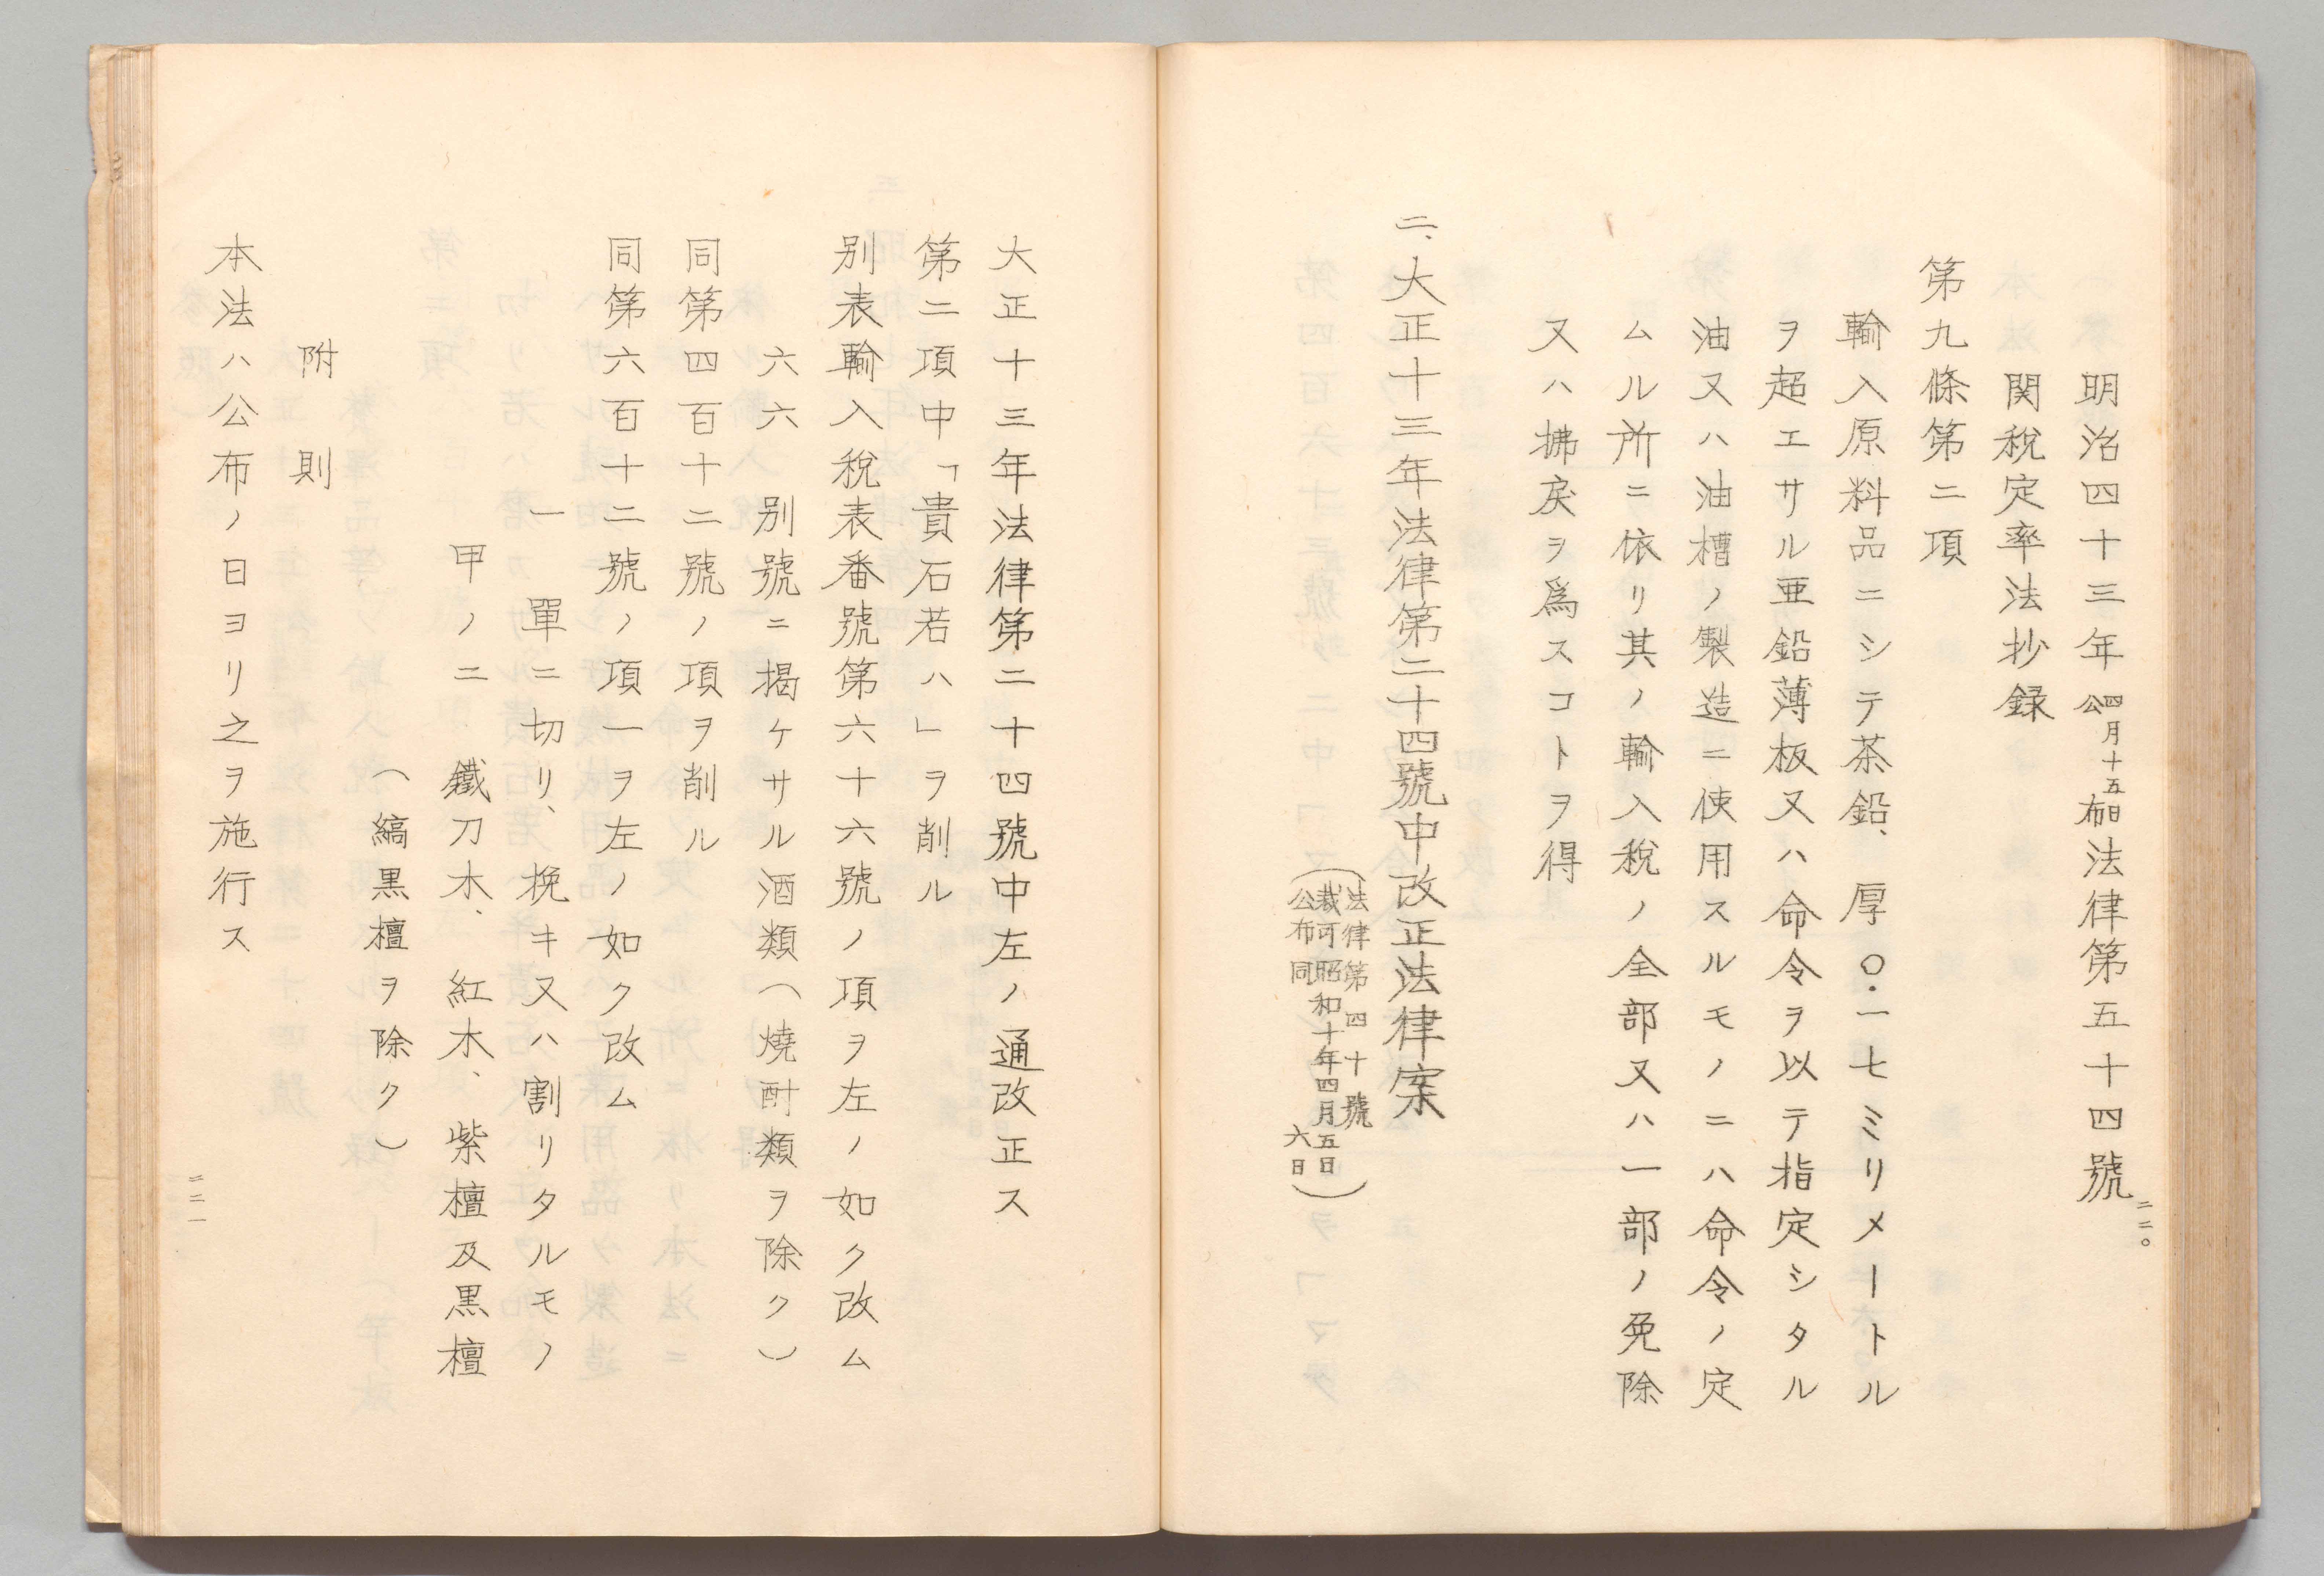 明治四十三年四月十五日公布法律第五十四號
関税定率法抄録
第九條第二項
輸入原料品ニシテ茶鉛、厚〇・一七ミリメートル
ヲ超エサル亜鉛薄板又ハ命令ヲ以テ指定シタル
油又ハ油槽ノ製造ニ使用スルモノニハ命令ノ定
ムル所ニ依リ其ノ輸入税ノ全部又ハ一部ノ免除
又ハ拂戻ヲ爲スコトヲ得
二、大正十三年法律第二十四號中改正法律案
(法律第四十號
裁可昭和十年四月五日
公布同六日)
二二〇
大正十三年法律第二十四號中左ノ通改正ス
第二項中「貴石若ハ」ヲ削ル
別表輸入税表番號第六十六號ノ項ヲ左ノ如ク改ム
六六 別號ニ掲ケサル酒類(燒酎類ヲ除ク)
同第四百十二號ノ項ヲ削ル
同第六百十二號ノ項一ヲ左ノ如ク改ム
一 單ニ切リ、挽キ又ハ割リタルモノ
甲ノ二 鐵刀木、紅木、紫檀及黒檀
(縞黒檀ヲ除ク)
附則
本法ハ公布ノ日ヨリ之ヲ施行ス
二二一